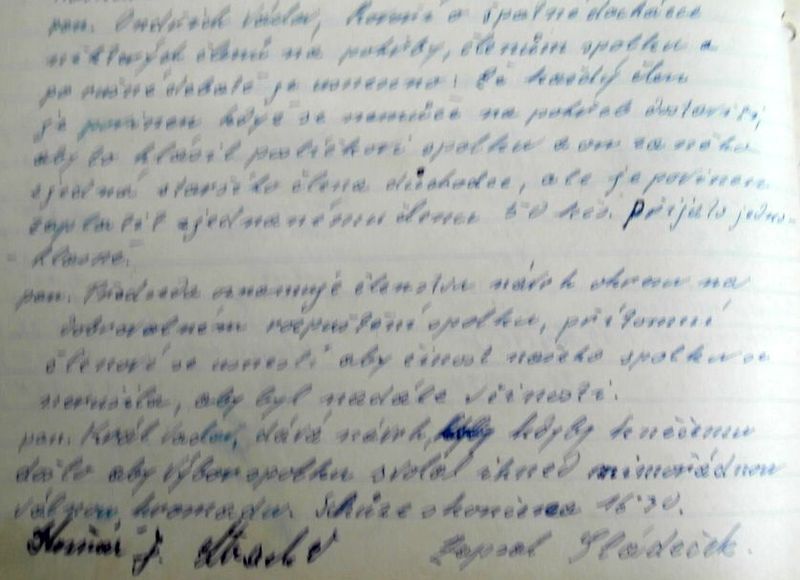 pan. Ondřich Václav, Komář o špatné docházce
některých členů na pohřby, členům spolku a
po různé debatě je usneseno: že každý člen
je povinen když se nemůže na pohřeb dostaviti,
aby to hlásil palíčkovi spolku a on za něho
sjedná staršího člena důchodce, ale je povinen
zaplatit sjednanému členu 50 kčs. přijato jedno-
hlasně.
pan. oznamuje členstvu návrh okresu na
dobrovolném rozpuštění spolku, přítomní
členové se usnesli aby činost našeho spolku se
nerušila, aby byl nadále v činosti.
pan. Král Václav, dává návrh, kdyby k něčemu
došlo aby výbor spolku svolal ihned mimořádnou
valnou hromadu. Schůze skončena 16 30.
Komář J. Zapsal Sládeček.